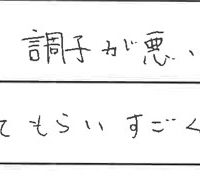 調子が悪い
てもらいすごく